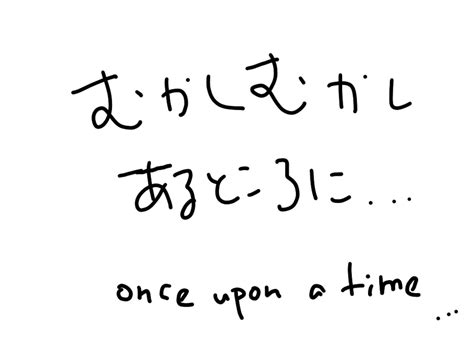 むかしむかし
あるところに...
once upon a time
...